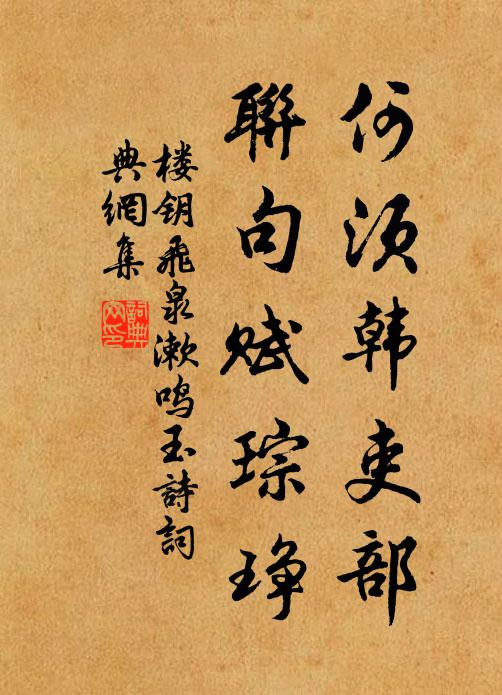 何须韩吏部
聯句赋琮琤
楼钥飛泉漱鸣玉詩詞
典網集
詞典
网印